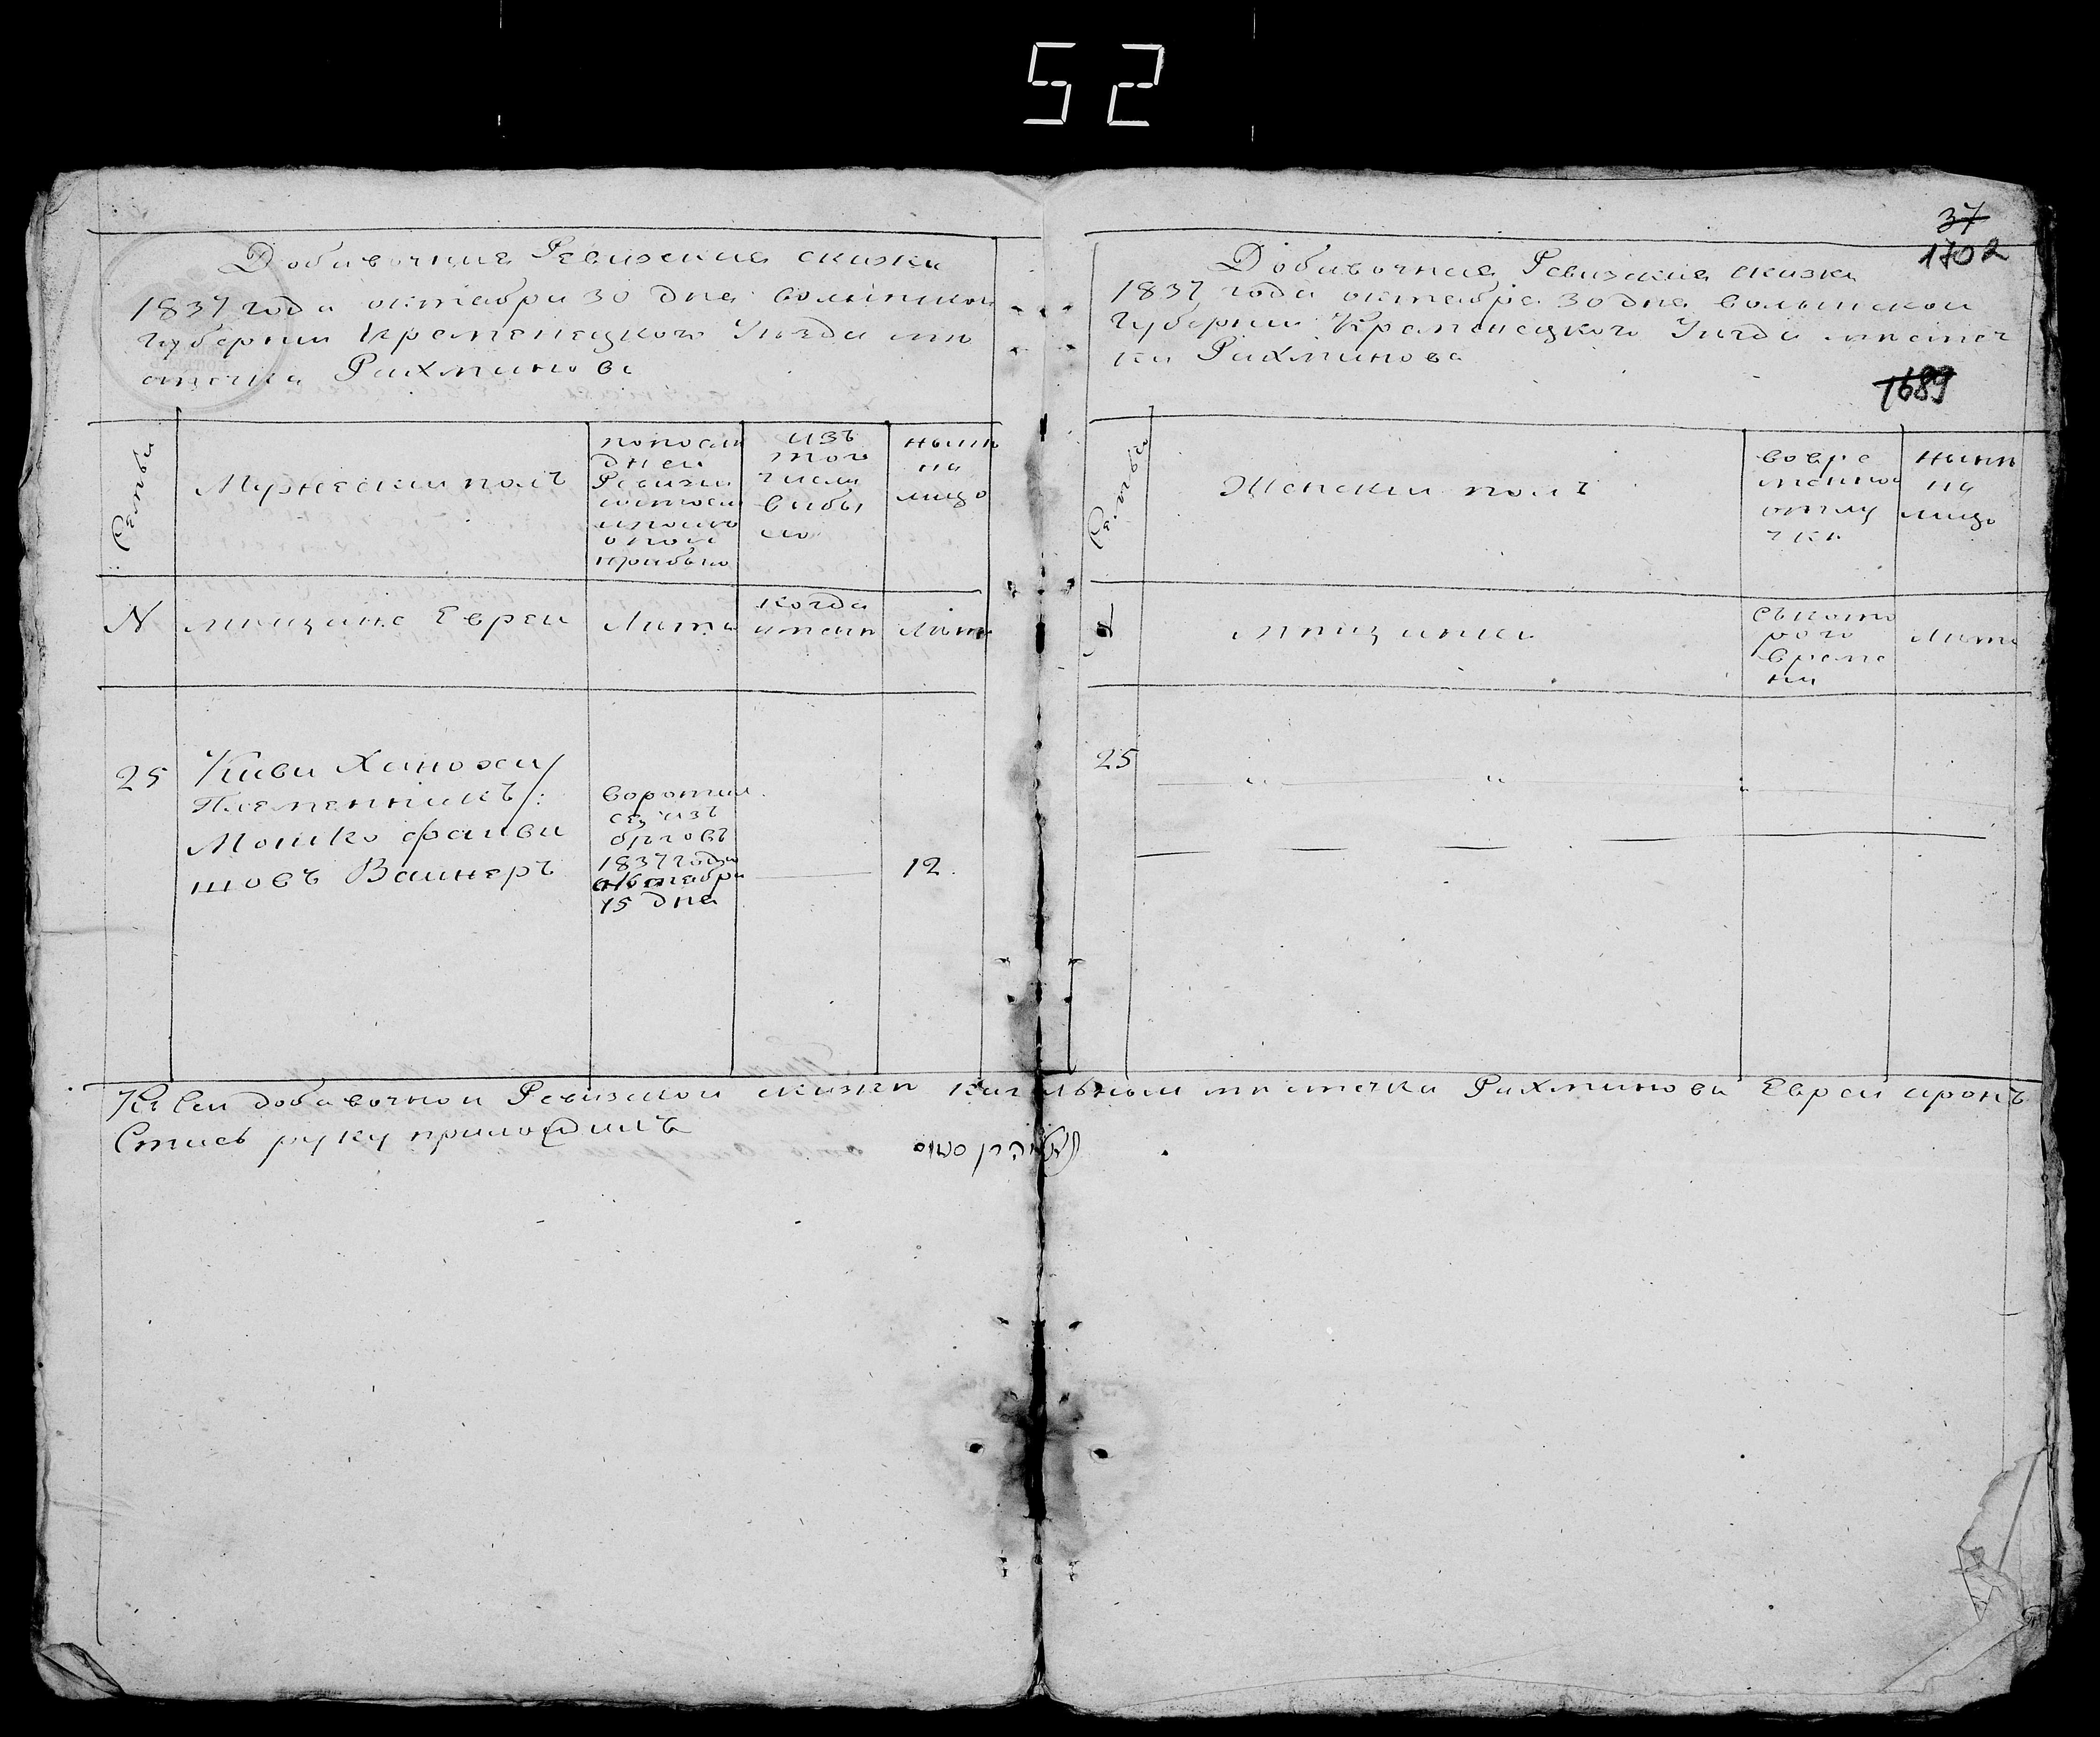 52
Добавочния Ревизския сказки
1837 года октабра 30 дня волынской
Губернии Кременецкого Уезда мѣ
стечка Рахманова
Семьи
Мужеский полъ
попослѣ
дней
Ревизии
состояли
ипосль
оной
прибыло
изъ
того
числа
выбы
ло
нынѣ
на
лицо
N
мѣщане Евреи
Лѣта
когда
имянно
Лѣта
25
Киви Ханохи/
Племенникъ/:
Мошко файви
шовъ Ваинеръ
воротил
ся изъ
бѣговъ
1837 года
октабра
15 дня
12.
37
1702
Добавочния Ревизския сказки
1837 года октабра 30 дня волынской
Губернии Кременецкого Уѣзда мѣстеч
ка Рахманова
1689
Семьи
Женский полъ
вовре
менной
отлу
чкѣ
нынѣ
на
лицо
мѣщанки
съкото
рого
време
ни
Лѣта
25
Ксей добавочной Ревизской сказки кагальный мѣстечка Рахманова Еврей аронъ
Стись руку приложилъ